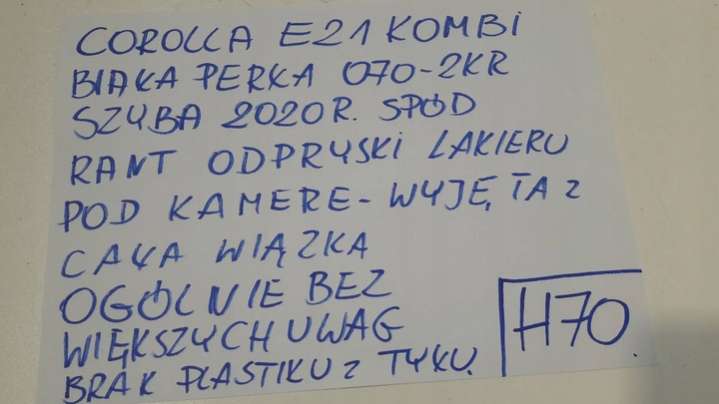 COROLLA E21 KOMBI
BIAŁA PERŁA 070-2KR
SZYBA 2020R. SPÓD
RANT ODPRYSKI LAKIERU
POD KAMERE-WYJĘTA Z
CAŁĄ WIĄZKA
OGÓLNIE BEZ
WIĘKSZYCH UWAG
BRAK PLASTIKU Z TYŁU.
H70